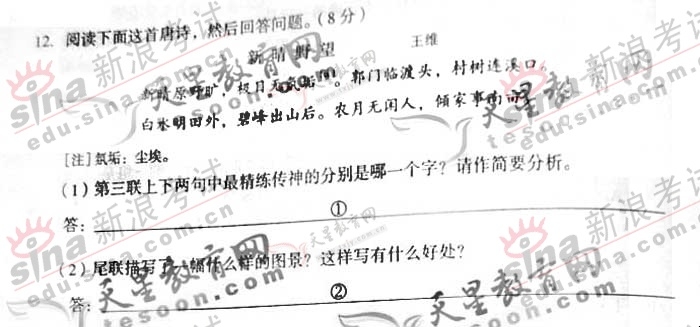 12. 阅读下面这首唐诗，然后回答问题。（8分）
新晴野望 王维
新晴原野旷，极目无氛垢[注]。郭门临渡头，村树连溪口。
白水明田外，碧峰出山后。农月无闲人，倾家事南
[注]氛垢：尘埃。
（1）第三联上下两句中最精练传神的分别是哪一个字？请作简要分析。
答：①
（2）尾联描写了一幅什么样的图景？这样写有什么好处？
答：②
sina 新浪考试
edu.sina.com.cn
天星教育网
tesoon.com